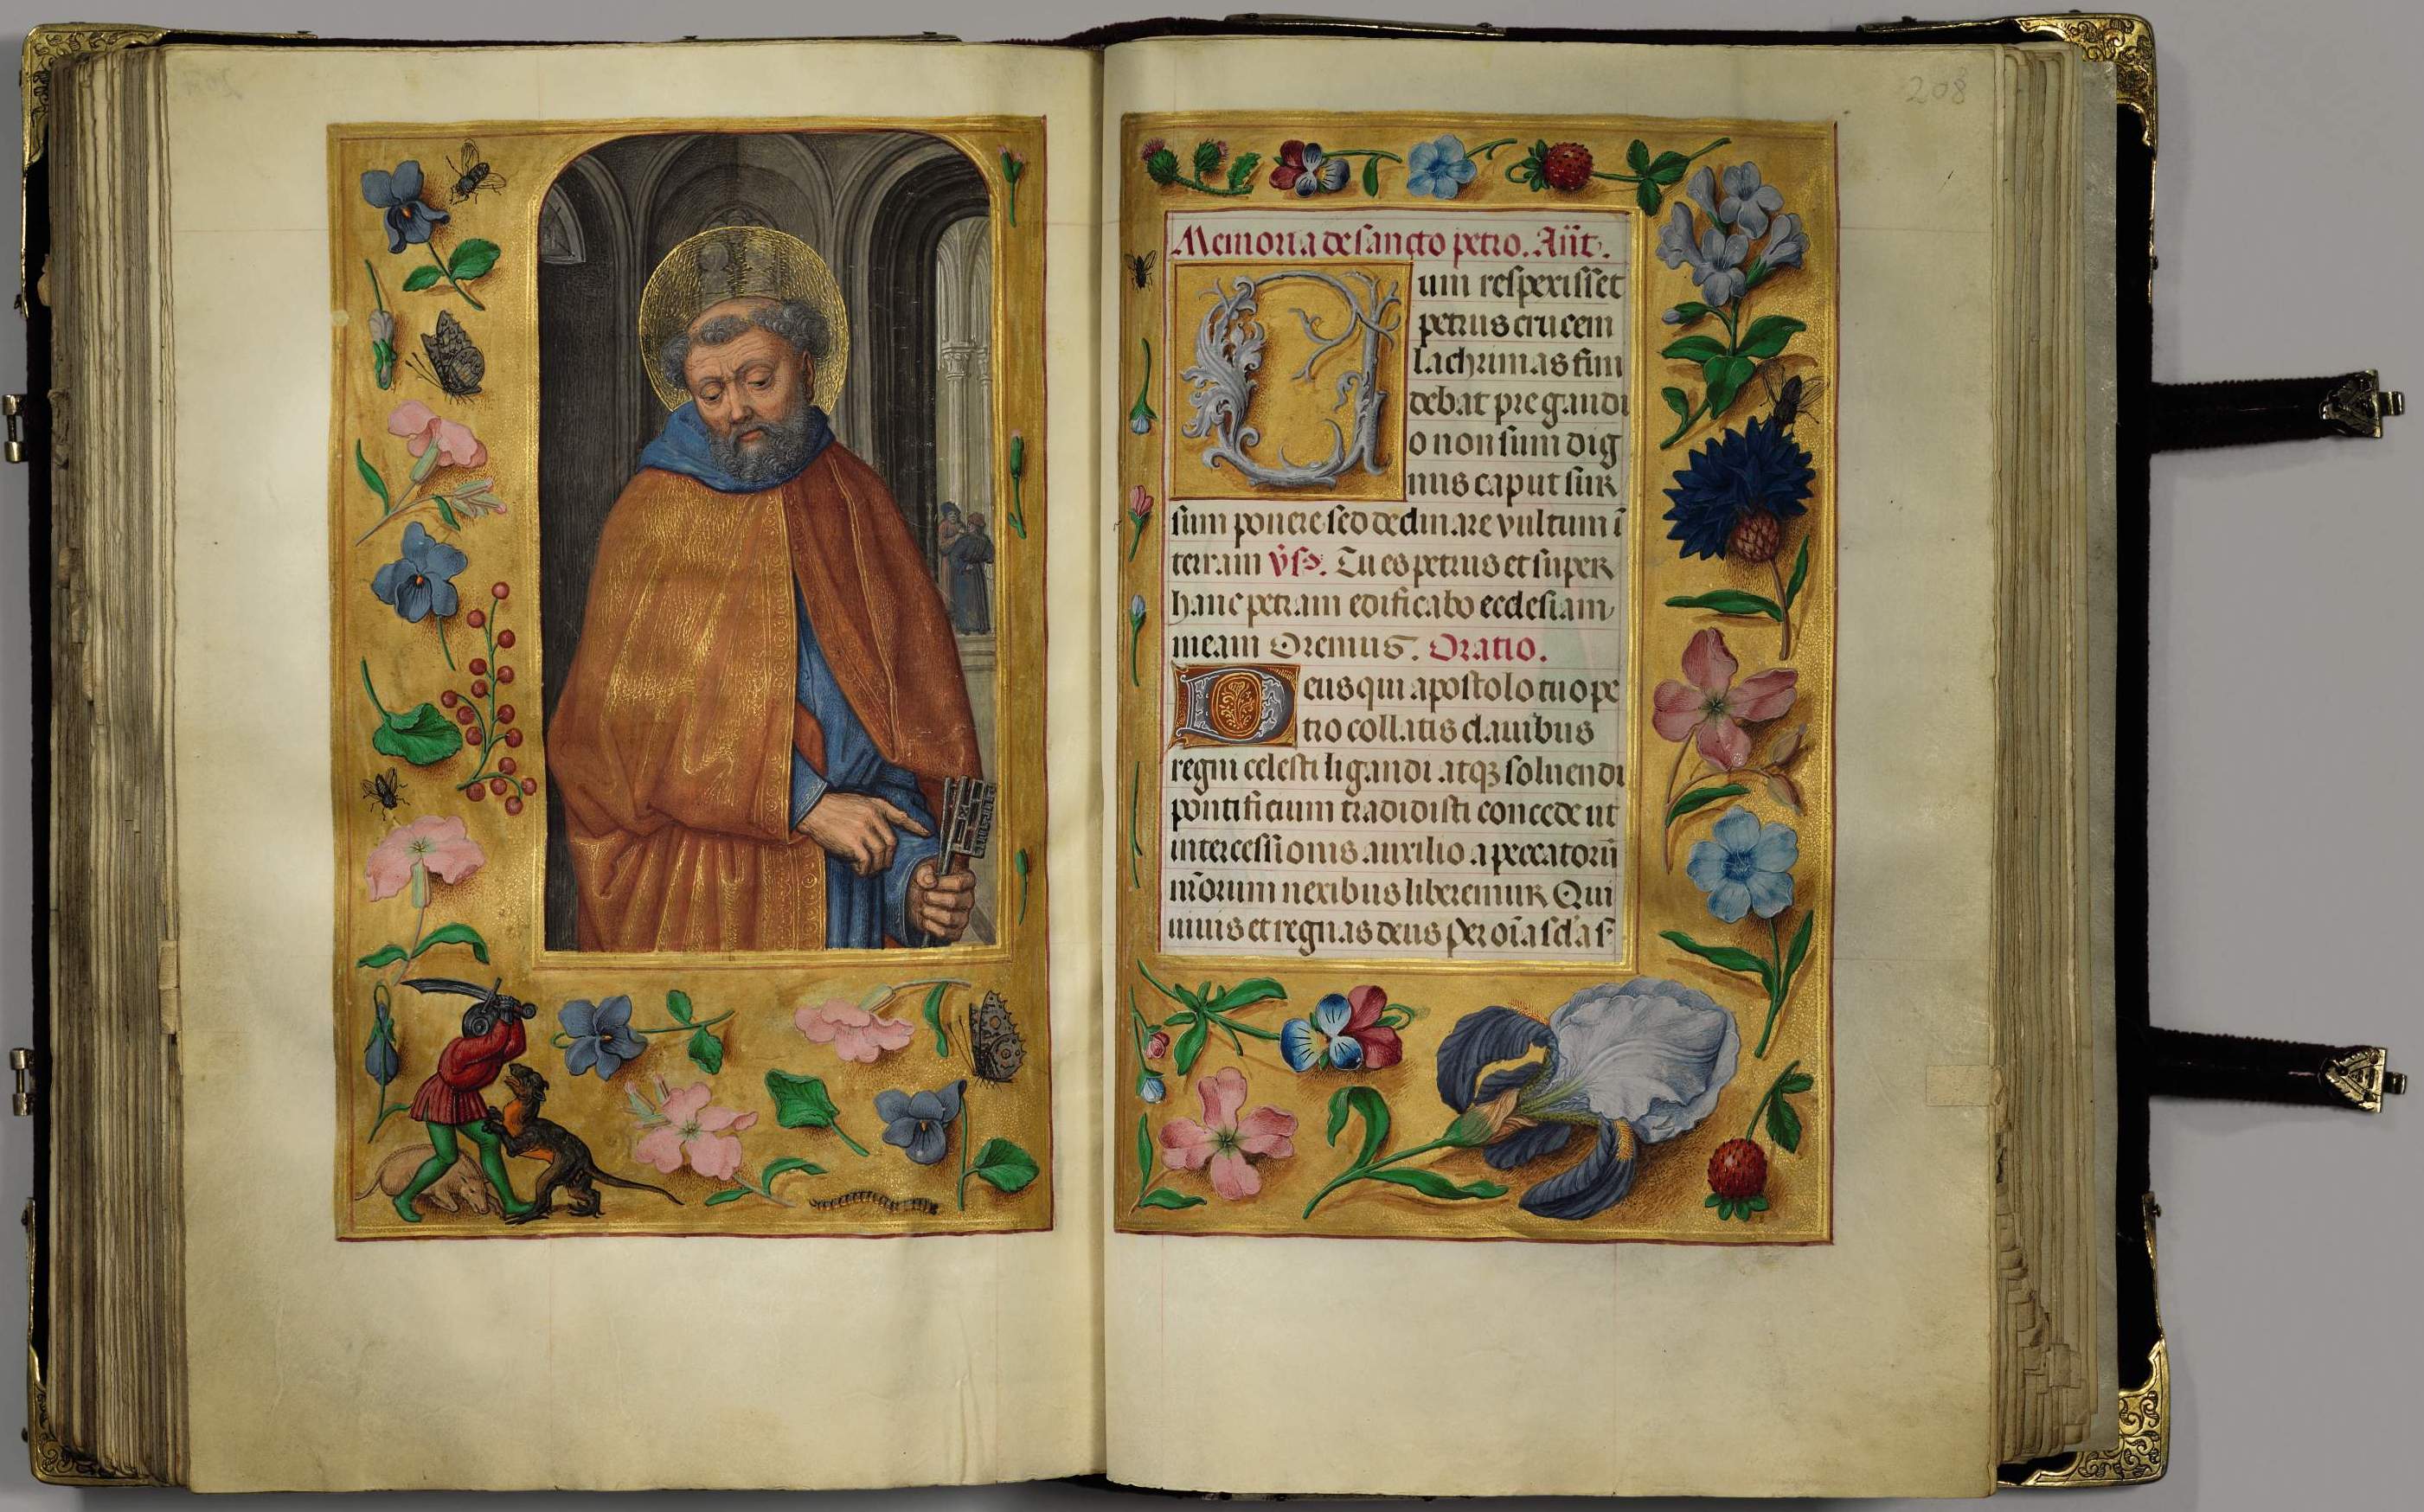 208
Memoria de sancto petro. Añt.
Cum respexisset
petrus crucem
lachrimas fun
debat pre gaudi
o non sum dig
nus caput sur
sum ponere sed declinare vultum ī
terram v̄s. Tu es petrus et super
hanc petram edificabo ecclesiam
meam Oremus. Oratio.
Deus qui apostolo tuo pe
tro collatis clauibus
regni celesti ligandi atqꝫ soluendi
pontificium tradidisti concede ut
intercessionis auxilio a peccatorū
nr̄orum nexibus liberemur Qui
uiuis et regnas deus Per oīa scl'a s